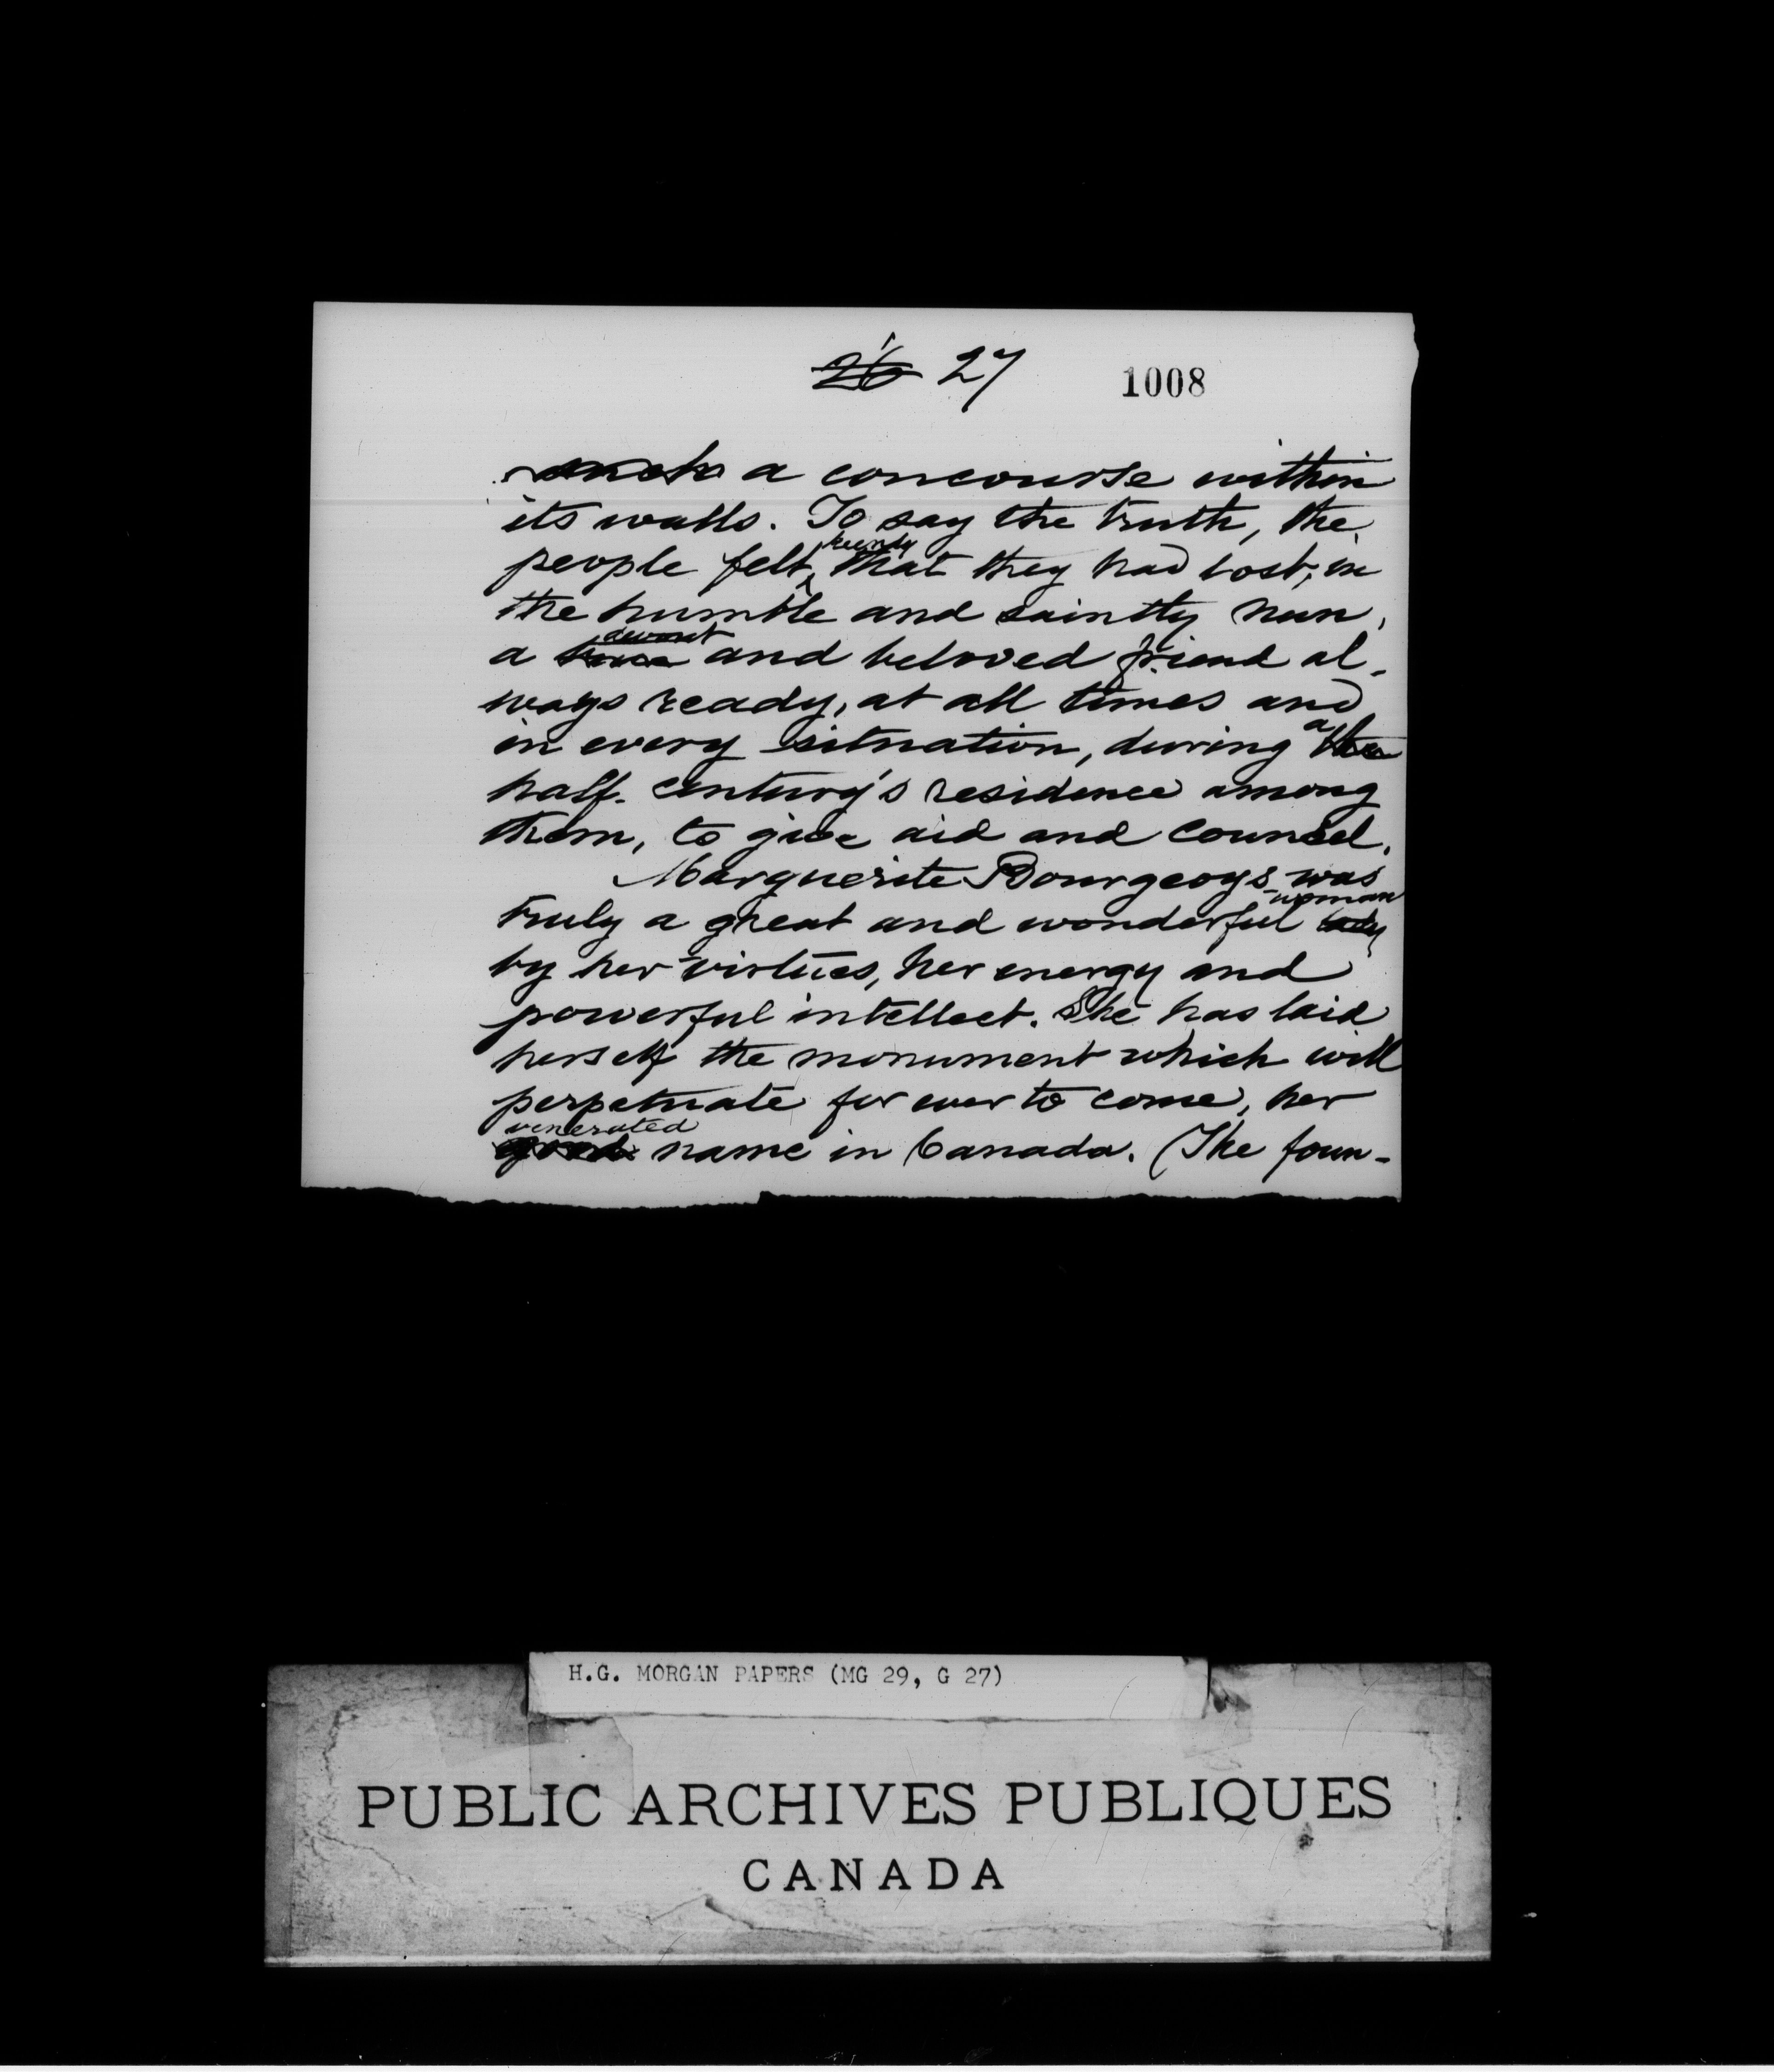 26 27
1008
such a concourse within
its walls. To say the truth, the
keenly
people felt that they had lost, in
the humble and saintly nun,
devout
a true and beloved friend al-
ways ready, at all times and
in every situation, during a the
half-century's residence among
them, to give aid and counsel.
Marguerite Bourgeoys was
woman
truly a great and wonderful lady
by her virtues, her energy and
powerful intellect. She has laid
herself the monument which will
perpetuate for ever to come, her
venerated
good name in Canada. (The foun-
H.G. MORGAN PAPERS (MG 29, G 27)
PUBLIC ARCHIVES PUBLIQUES
CANADA